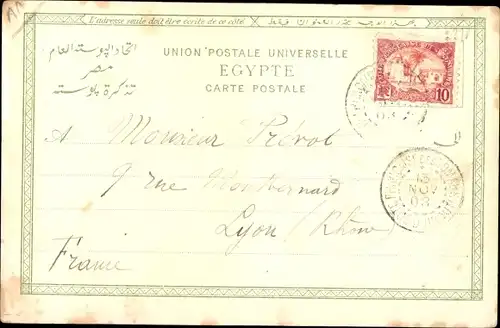 L'adresse seule doit être écrite de ce côté
UNION POSTALE UNIVERSELLE
EGYPTE
CARTE POSTALE
اتحاد البوسته العام
مصر
تذكرة بوسته
10
13
NOV
03
A Monsieur Prévot
9 rue Montbernard
Lyon (Rhône)
France